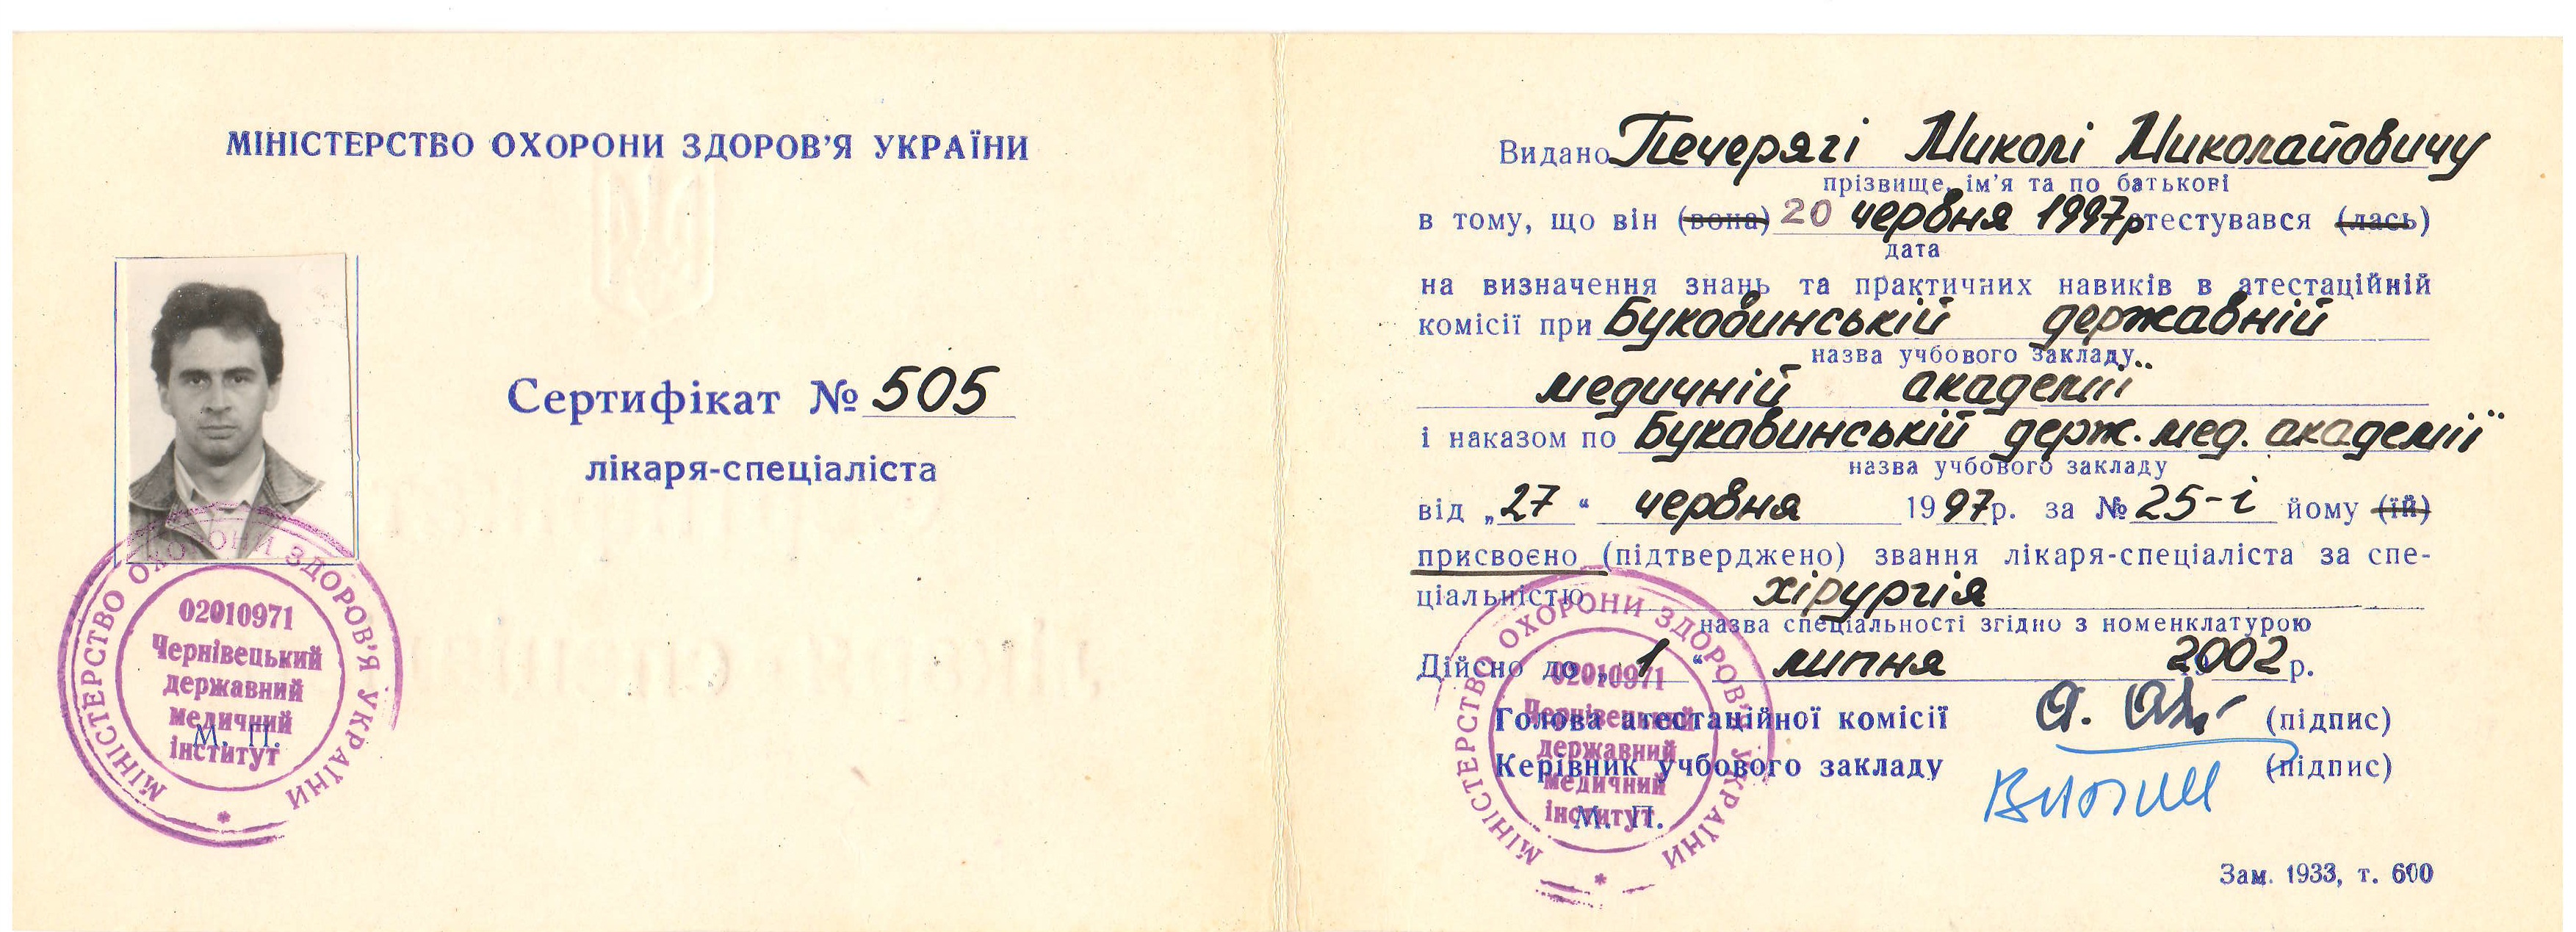 МІНІСТЕРСТВО ОХОРОНИ ЗДОРОВ'Я УКРАЇНИ
Сертифікат № 505
лікаря-спеціаліста
МІНІСТЕРСТВО ОХОРОНИ ЗДОРОВ'Я УКРАЇНИ
02010971
Чернівецький
державний
медичний
інститут
М. П.
Видано Печерягі Миколі Миколайовичу
прізвище, ім'я та по батькові
в тому, що він (вона) 20 червня 1997р атестувався (лась)
дата
на визначення знань та практичних навиків в атестаційній
комісії при Буковинській державній
назва учбового закладу
медичній академії
і наказом по Букавинській держ. мед. академії
назва учбового закладу
від „27“ червня 1997р. за № 25-і йому (їй)
присвоєно (підтверджено) звання лікаря-спеціаліста за спе-
ціальністю хірургія
назва спеціальності згідно з номенклатурою
Дійсно до „1“ липня 2002р.
Голова атестаційної комісії (підпис)
Керівник учбового закладу (підпис)
М. П.
МІНІСТЕРСТВО ОХОРОНИ ЗДОРОВ'Я УКРАЇНИ
02010971
Чернівецький
державний
медичний
інститут
Зам. 1933, т. 600